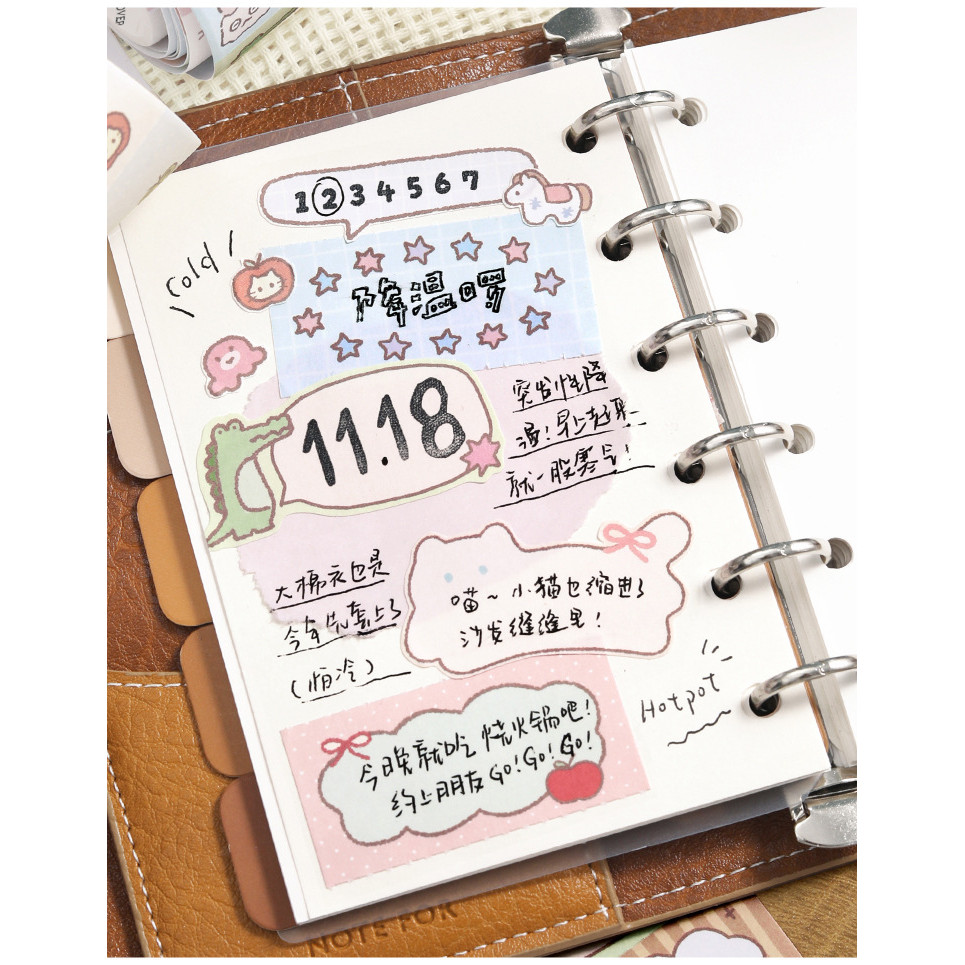 OVER
1 2 3 4 5 6 7
cold
降温啰
11.18
突发性降
温！早上起来
就一股寒气！
大棉衣也是
今年先套上了
（怕冷）
喵～小猫也缩进了
沙发缝缝里！
Hotpot
今晚就吃烧火锅吧！
约上朋友GO！GO！GO！
NOTE FOR